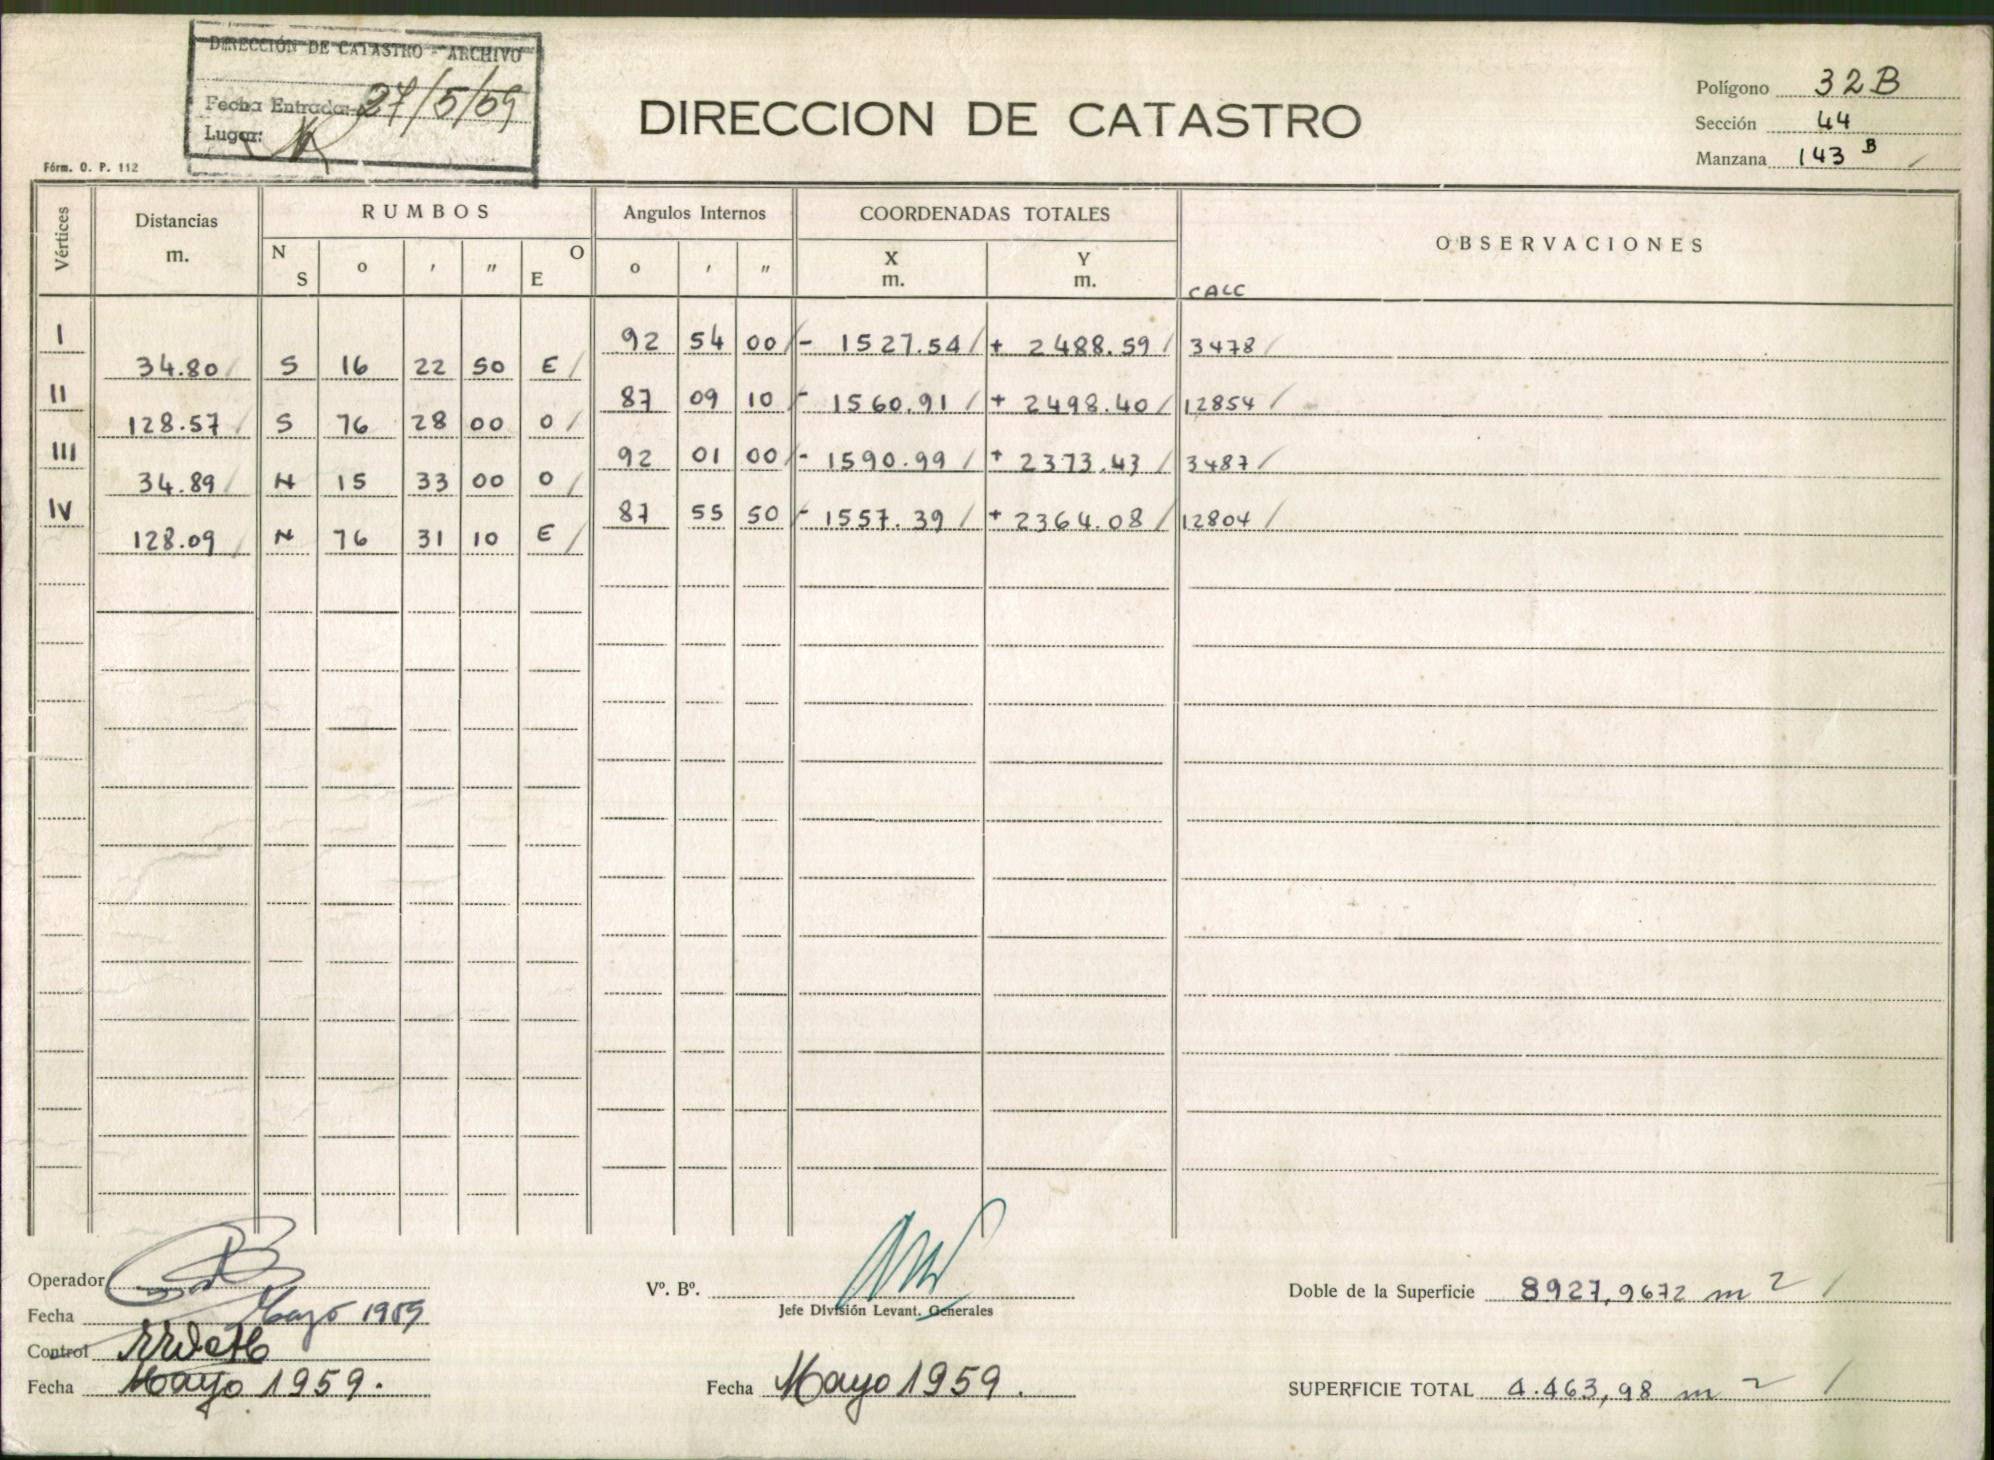 DIRECCIÓN DE CATASTRO - ARCHIVO
Fecha Entrada: 27/5/59
Lugar:
Fórm. O. P. 112
DIRECCION DE CATASTRO
Polígono 32B
Sección 44
Manzana 143 B
Vértices
Distancias
m.
RUMBOS
N S ° ' " O E
Angulos Internos
° ' "
COORDENADAS TOTALES
X
m.
Y
m.
OBSERVACIONES
CALC
I 92 54 00 - 1527.54 + 2488.59 3478
34.80 S 16 22 50 E
II 87 09 10 - 1560.91 + 2498.40 12854
128.57 S 76 28 00 O
III 92 01 00 - 1590.99 + 2373.43 3487
34.89 N 15 33 00 O
IV 87 55 50 - 1557.39 + 2364.08 12804
128.09 N 76 31 10 E
Operador
Fecha Mayo 1959
Control
Fecha Mayo 1959.
Vº. Bº.
Jefe División Levant. Generales
Fecha Mayo 1959.
Doble de la Superficie 8927,9672 m 2
SUPERFICIE TOTAL 4.463,98 m 2